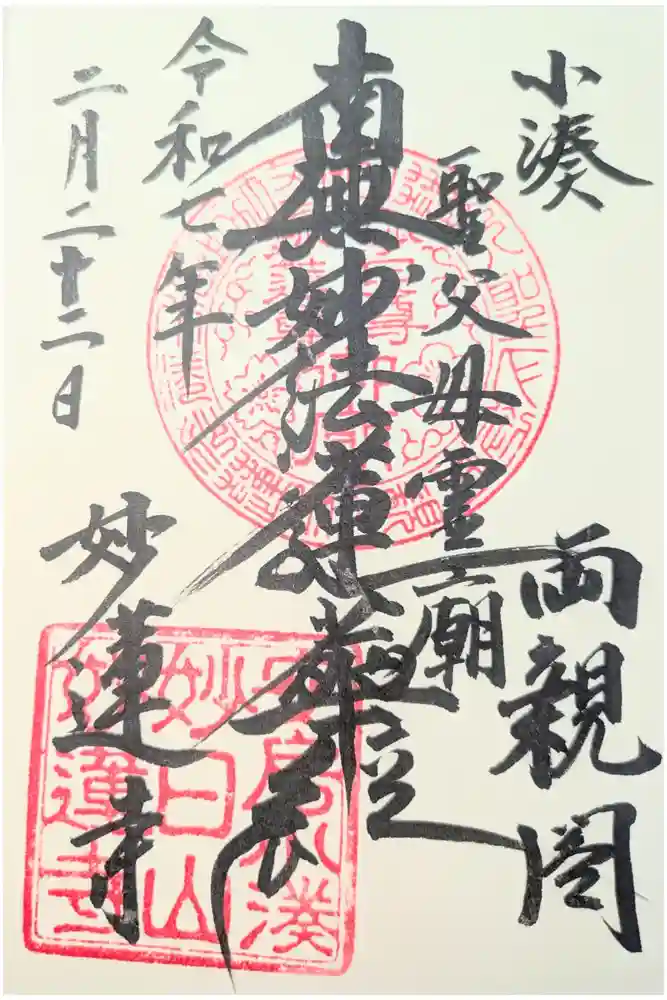 小湊　両親閣
聖父母霊廟
南無妙法蓮華経
令和七年
二月二十二日
妙蓮寺
安房小湊
妙日山
妙蓮寺